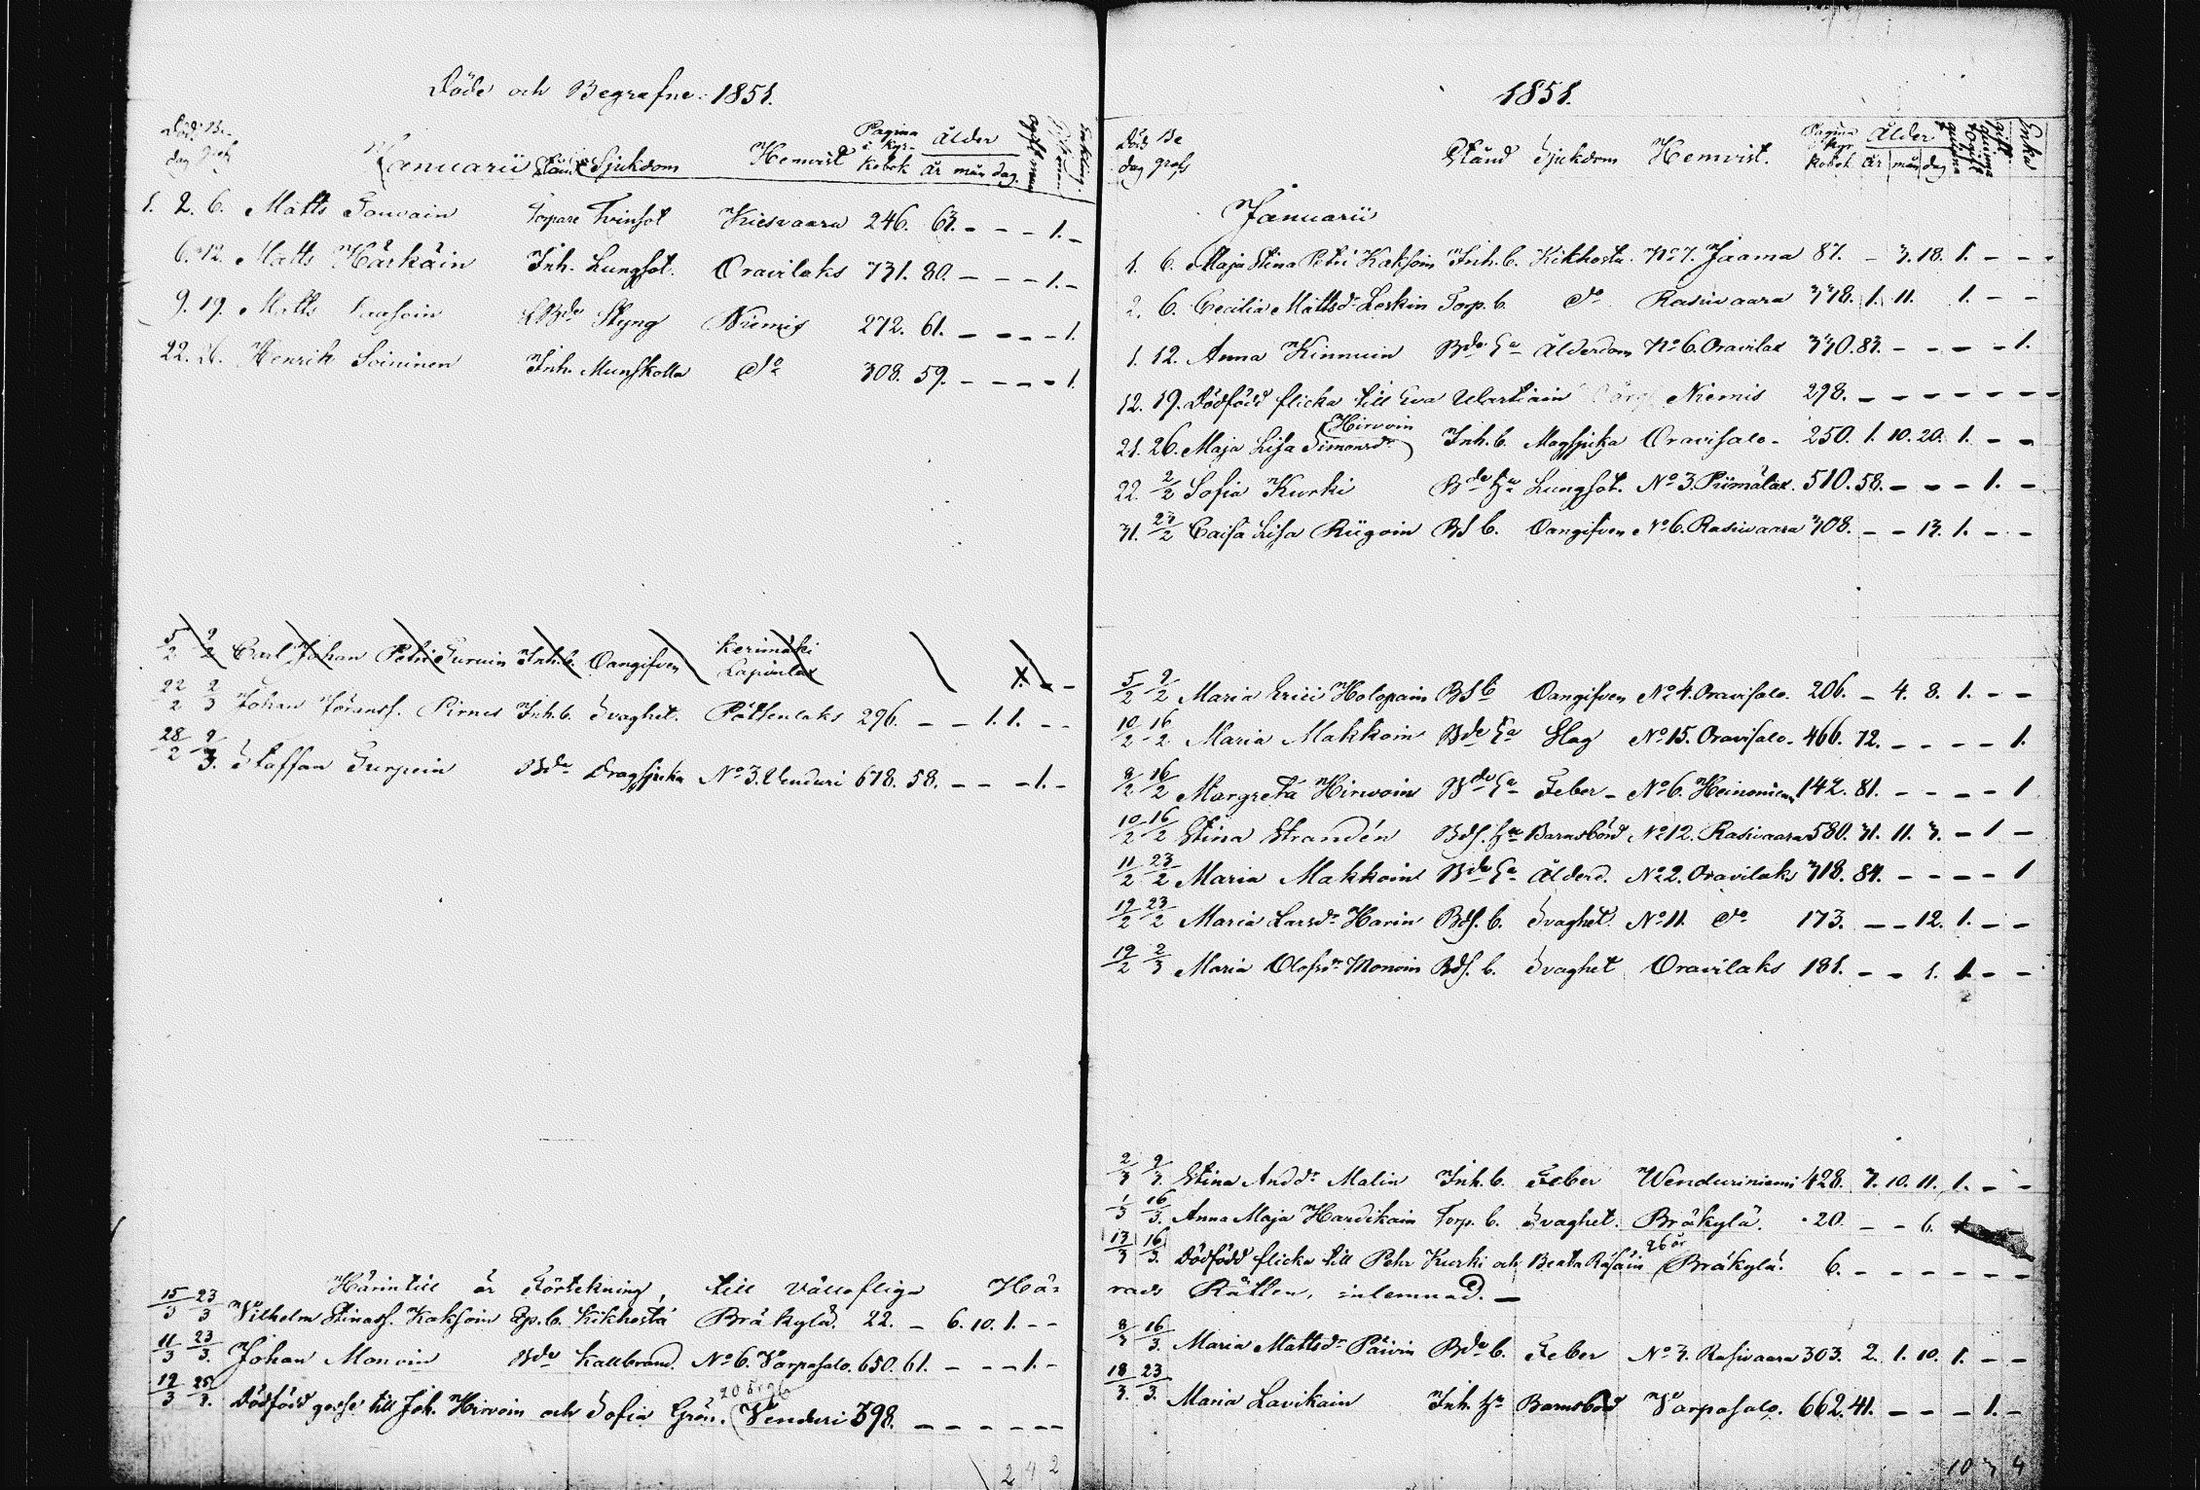 Döde och Begrafne 1851.
Död Be-
dag grafs
Januarii Stånd Sjukdom Hemvist Pagina i Kyr-kobok Ålder år mån dag. ogift man gift man Enkling.
1. 2. 6. Matts Torpare Tvinsot Kiesvaara 246. 63. - - - 1. -
6. 12. Matts Härkäin Inh. Lungsot. Oravilaks 731. 80. - - - 1. -
9. 19. Matts Bde Styng Niemis 272. 61. - - - - 1.
22. 26. Henrik Soininen Inh. do 308. 59. - - - - 1.
5/2 9/2 Carl Johan Petri Turuin Inh. b. Oangifven Kerimäki
1. - -
22/2 2/3 Johan Göranss. Pirnes Inh. b. Svaghet. Potsenlaks 296. - - 1. 1. - -
28/2 9/3. Staffan Turpein Bde Bragsjuka No 3. Venduri 678. 58. - - - 1. -
Härintill är Förtekning, till Vällofliga Hä-
15/3 23/3 Vilhelm Stinass. Kaksoin b. Kikhosta Bräkylä. 22. - 6. 10. 1. - -
11/3 23/3. Johan Monoin Bde Kallbrand. No 6. Varpasalo. 650. 61. - - - 1. -
19/3 25/3. Dödfödd gosse till Joh. Hirvoin och Sofia Grön. Venduri 398. - - - - - -
2 4 2
1851.
Död Be
dag grafs
Stånd Sjukdom Hemvist. Pagina i Kyrkobok Ålder år mån dag Enka
Januarii
1. 6. Maja Stina Petri Kaksoin Inh. b. Kikhosta. No 7. Jaama 87. - 3. 18. 1. - - -
2. 6. Cecilia Mattsdr Leskin Torp. b. do Rasivaara 378. 1. 11. 1. - -
1. 12. Anna Kinnuin Bde Ea Ålderdom No 6. Oravilax 330. 83. - - - - 1.
12. 19. Dödfödd flicka till Eva Niemis 298. - - - - - - -
Hirvoin
21. 26. Maja Lisa Simonsdr Inh. b. Magsjuka Oravisalo - 250. 1. 10. 20. 1. - -
22. 2/2 Sofia Kurki Bde Hu Lungsot. No 3. Piimälax. 510. 58. - - - 1. -
31. 23/2 Caisa Lisa Riigoin Bs b. Oangifven No 6. Rasivaara 308. - - 13. 1. - -
5/2 9/2 Maria Erici Holopain Bs b Oangifven No 4. Oravisalo. 206. - 4. 8. 1. - -
10/2 16/2 Maria Makkoin Bde Ea Slag No 15. Oravisalo. 466. 72. - - - - 1.
8/2 16/2 Margreta Hirvoin Bde Ea Feber - No 6. Heinoniemi 142. 81. - - - - 1
10/2 16/2 Stina Strandén Bds. Hu Barnsbörd No 12. Rasivaara 580. 31. 11. 3. - 1 -
11/2 23/2 Maria Makkoin Bde Ea Ålderd. No 2. Oravilaks 318. 84. - - - - 1
19/2 23/2 Maria Larsdr Havin Bds. b. Svaghet No 11. do 173. - - 12. 1. - -
19/2 2/3 Maria Olofsdr Monoin Bds. b. Svaghet Oravilaks 181. - - 1. 1. - -
2/3 9/3. Stina Andd. Malin Inh. b. Feber Venduriniemi 428. 7. 10. 11. 1. - -
1/3 16/3. Anna Maja Hardikain Torp. b. Svaghet. Bräkylä. 20. - - 6.
26 år
13/3 16/3. Dödfödd flicka till Pehr Kurki och Beata Räsäin Bräkylä. 6. - - - - - -
rads Rätten, inlemnad. -
8/3 16/3. Maria Mattsdr Päivin Bde b. Feber No 3. Rasivaara 303. 2. 1. 10. 1. - -
18/3. 23/3. Maria Lavikain Inh. Hu Barnsbörd Varpasalo. 662. 41. - - - 1. -
10 7 4